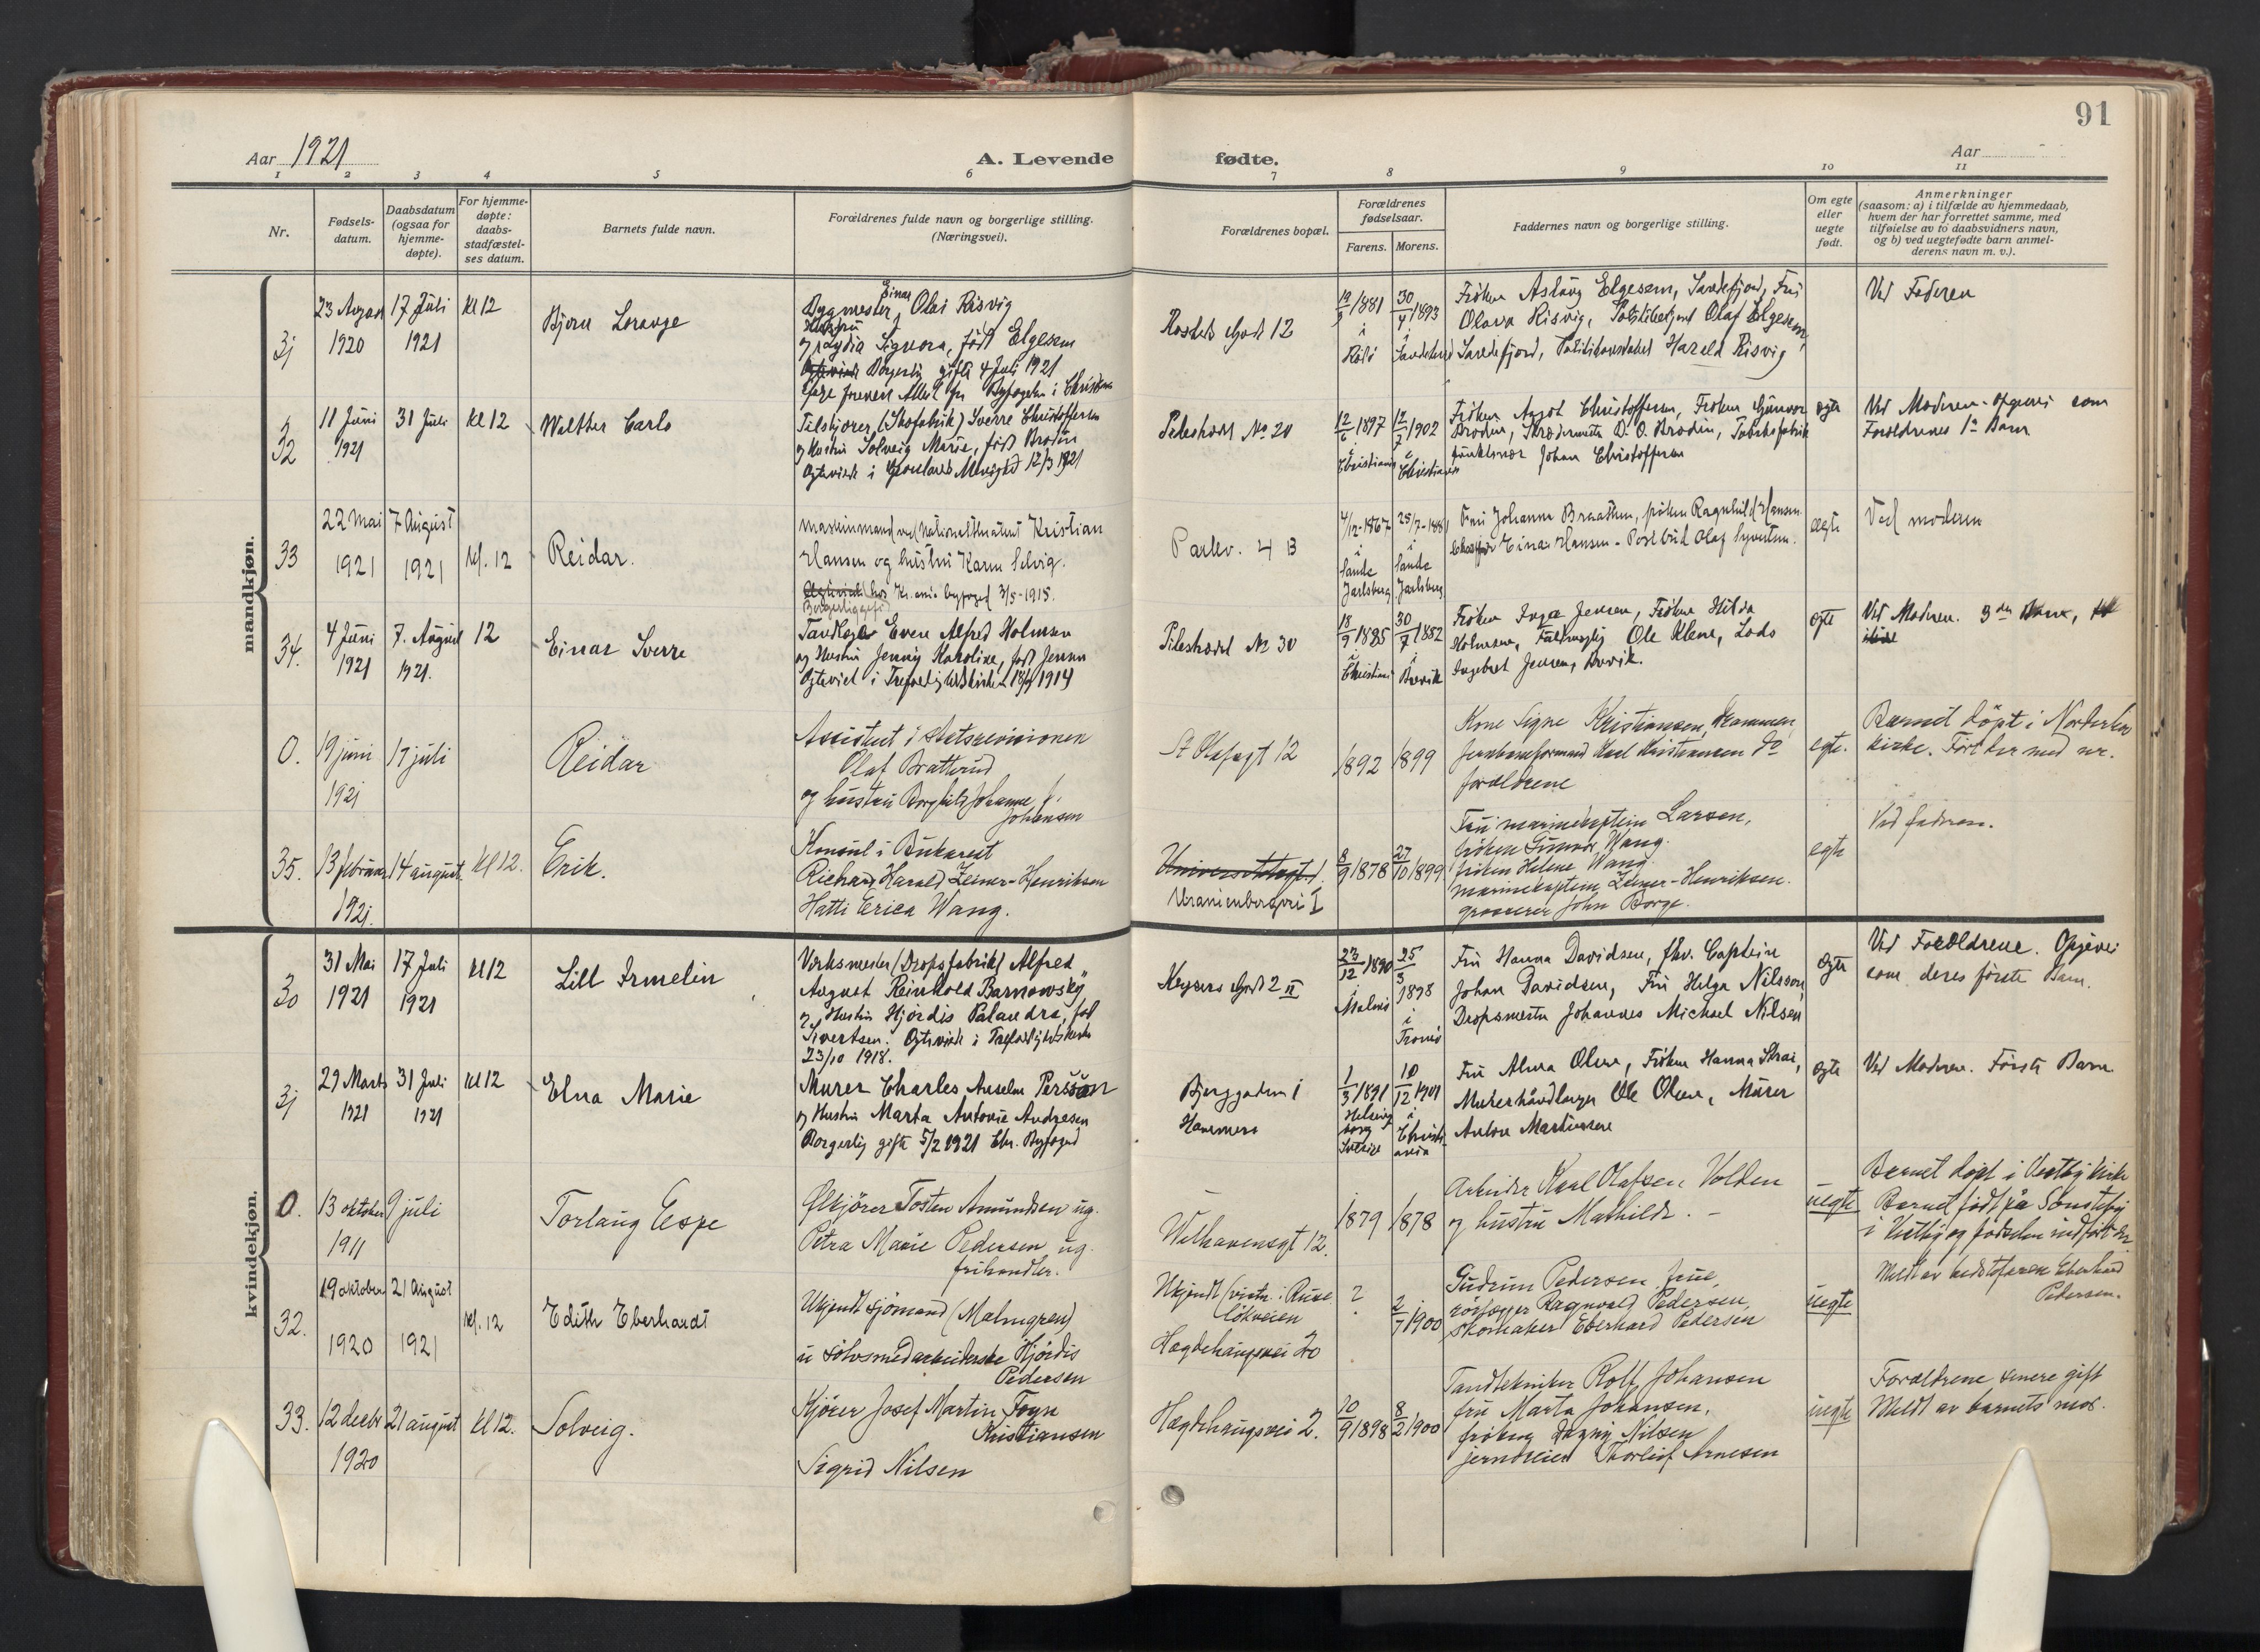 91
Aar 1921
A. Levende
fødte.
Aar
1 2 3 4 5 6 7 8 9 10 11
Nr.
Fødsels-
datum.
Daabsdatum
(ogsaa for
hjemme-
døpte).
For hjemme-
døpte:
daabs-
stadfæstel-
ses datum.
Barnets fulde navn.
Forældrenes fulde navn og borgerlige stilling.
(Næringsvei).
Forældrenes bopæl.
Forældrenes
fødselsaar.
Farens. Morens.
Faddernes navn og borgerlige stilling.
Om egte
eller
uegte
født.
Anmerkninger
(saasom: a) i tilfælde av hjemmedaab,
hvem der har forrettet samme, med
tilføielse av to daabsvidners navn,
og b) ved uegtefødte barn anmel-
derens navn m. v.).
mandkjøn.
31
23 August
1920
17 Juli
1921
Kl 12
Bjørn
Bygmester Einar Olai Risvig
Hustru
og Lydia Signora, født Elgesem
Borgerlig gifte 4 Juli 1921
Byfogden i
12
19/3 1881
i
30/4 1893
i
Frøken Aslaug Elgesem, Sandefjord, Fru
Olava Risvig, Olaf Elgesem,
Sandefjord, Harald Risvig
Ved Faderen
32
11 Juni
1921
31 Juli
Kl 12
Walther Carlo
Tilskjærer (Skofabrik) Sverre Christoffersen
og Hustru Solveig Marie, født Brodin
Egteviede i Grønlands Menighed 12/3 1921
Pilestræde No 20
12/6 1897
i
Christiania
12/7 1902
i
Christiania
Frøken Aagot Christoffersen, Frøken Gunvor
Brodin, Skrædermester D. O. Brodin,
Johan Christoffersen
egte
Ved Moderen - Opgives som
Forældrenes 1ste Barn
33
22 Mai
1921
7 August
1921
kl. 12
Reidar.
maskinmand ved Nationaltheatret Kristian
Hansen og hustru Karen Selvig.
hos Kr.ania byfoged 3/5-1915.
Borgerlig gift
Parkv. 4 B
4/12-1867
i
Sande
Jarlsberg
25/7-1881
i
Sande
Jarlsberg
Fru Johanna Braathen, frøken Ragnhild Hansen
Chauffør Einar Hansen - Postbud Olaf Syvertsen.
egte
Ved moderen
34.
4 Juni
1921
7. August
1921.
12
Einar Sverre
Tandlæge Even Alfred Holmsen
og Hustru Jenny Karoline, født Jensen
Egteviet i Trefoldighedskirken 1914
Pilestræde No 30
18/9 1885
i
Christiania
30/7 1882
i
Brevik
Frøken Inga Jensen, Frøken Hilda
Holmsen, Ole Klene, Lods
Ingebret Jensen, Brevik.
egte
Ved Moderen. 3die Barn,
0.
19 juni
1921
17 juli
Reidar
Assistent i statsrevisionen
Olaf Bratterud
og hustru Borghild Johanne f.
Johansen
St Olafsgt 12
1892
1899
Kone Signe Kristiansen, Drammen,
Jernbaneformand Karl Kristiansen do
forældrene
egte.
Barnet døpt i Norderhov
kirke. Ført her med nr.
35.
13 februar
1921.
14 august
kl 12.
Erik.
Konsul i Bukarest
Richard Harald Zeiner-Henriksen
Hatti Erica Wang.
Universitetsgt. 1.
Uranienborgvei 1
8/9 1878
27/10 1899
Fru marinekaptein Larsen,
frøken Gunvor Wang.
frøken Helene Wang.
marinekaptein Zeiner-Henriksen.
grosserer John Borge.
egte
Ved faderen.
kvindekjøn.
30
31 Mai
1921
17 Juli
1921
Kl 12
Lill Irmelin
Verksmester (Dropsfabrik) Alfred
August Reinhold Barnowsky
og Hustru Hjørdis Palandra, født
Sivertsen. Egteviede i Trefoldighedskirken
23/10 1918.
Keysers Gade 2 II
23/12 1890
i
Malmø
25/3 1898
i
Tromsø
Fru Hanna Davidsen, fhv. Captein
Johan Davidsen, Fru Helga Nilsson,
Dropsmester Johannes Michael Nilsen
egte
Ved Forældrene. Opgives
som deres første Barn.
31
29 Marts
1921
31 Juli
1921
Kl 12
Elna Marie
Murer Charles Anselm Persson
og Hustru Marta Antonie Andresen
Borgerlig gifte 5/2 1921 Chr. Byfoged
Bjerggaden 1
Hammers
1/3 1891
Helsing
borg
Sverige
10/12 1901
i
Christi
ania
Fru Alma Olsen, Frøken Hanna Strai,
Murerhåndlanger Ole Olsen, Murer
Anton Martinsen
egte
Ved Moderen. Første Barn
0.
13 oktober
1911
9 juli
Torlaug Espe
Ølkjører Tosten Amundsen ug.
Petra Marie Pedersen ug.
frihandler.
Welhavensgt 12.
1879
1878
Arbeider Karl Olafsen Volden
og hustru Mathilde. -
uegte
Barnet døpt i Vestby kirke
Barnet født på Sonsteby
i Vestby og fødselen indført der
32.
19 oktober
1920
21 August
1921
kl. 12
Edith Eberhardt
Ukjendt sjømand (Malmgren)
u sølvsmedarbeiderske Hjørdis
Pedersen
Ukjendt (vistn. i Rune
løkveien
Hægdehaugsvei 20
?
2/7 1900
Gudrun Pedersen frue,
rørlægger Ragnvald Pedersen,
skomaker Eberhard Pedersen
uegte
Meldt av bedstefaren Eberhard
Pedersen.
33.
12 decbr
1920
21 august
kl 12.
Solveig.
Kjører Josef Martin Foyn
Kristiansen
Sigrid Nilsen
Hægdehaugsvei 2.
10/9 1898
8/2 1900
Tandtekniker Rolf Johansen
fru Marta Johansen,
frøken Dagny Nilsen
jerndreier Thorleif Arnesen
uegte
Forældrene senere gift
Meldt av barnets mor.